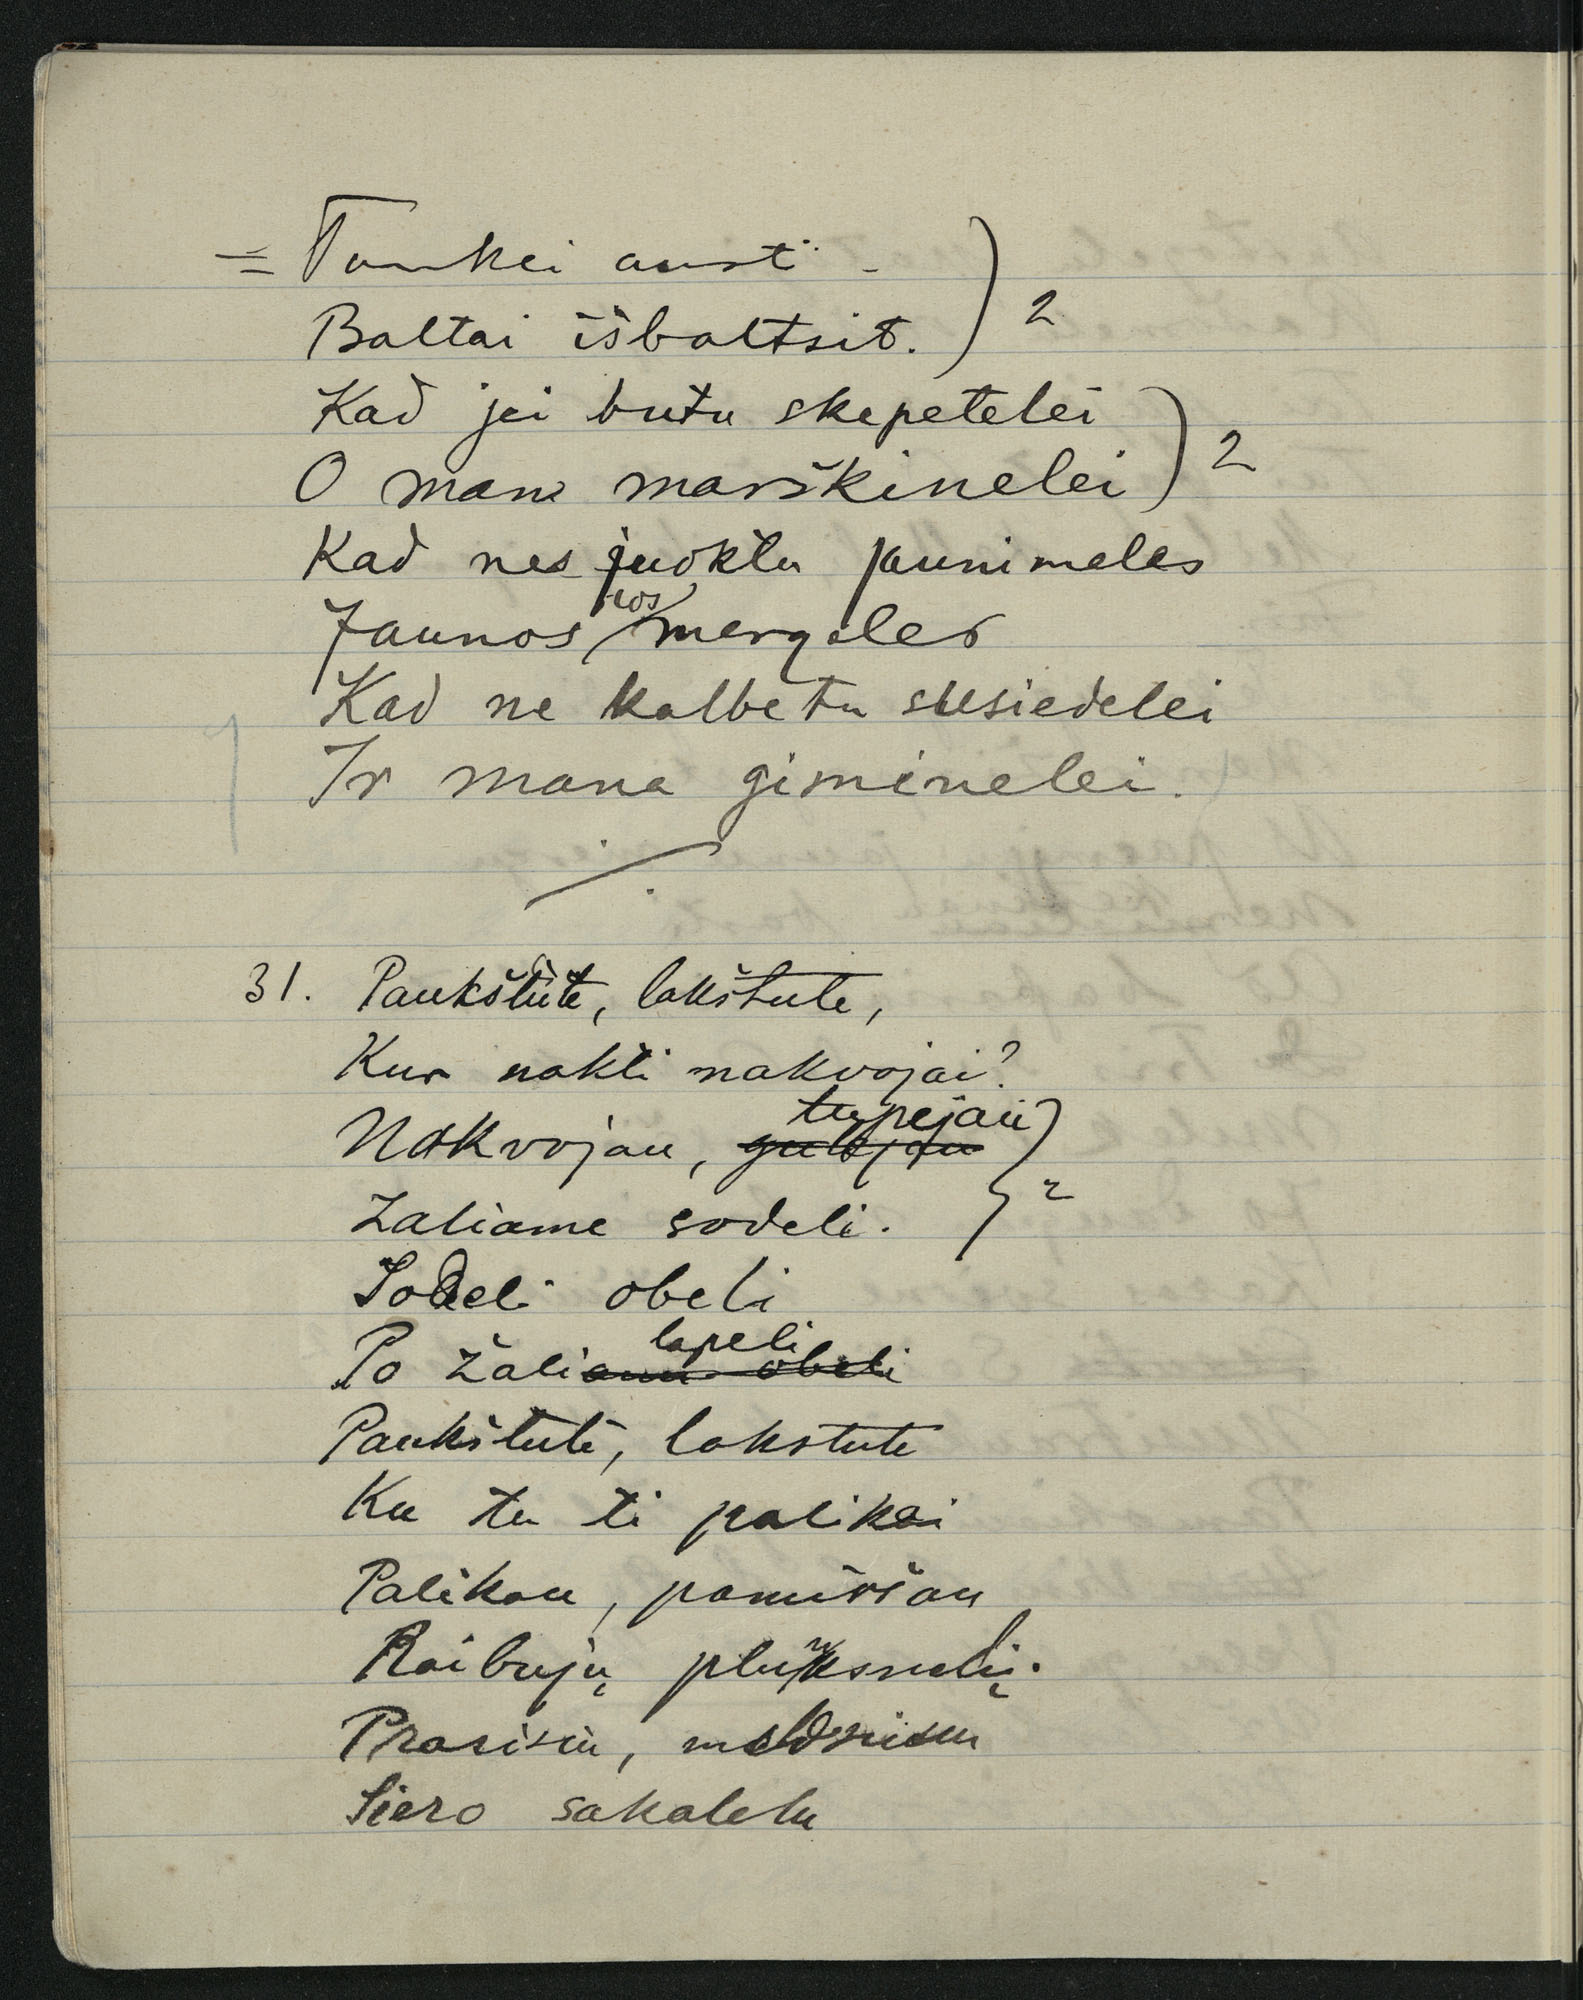 = Tankei austi -
Baltai išbaltsit. ) 2
Kad jei butu skepetelei
O mana marškinelei ) 2
Kad nes juoktu jaunimeles
Jaunos ios mergeles
Kad ne kalbetu susiedelei
Ir mana giminelei.
31. Paukštute, lakštute,
Kur nakti nakvojai?
tupejau
Nakvojau, gulejau
Žaliame sodeli. } 2
Sodeli obeli
lapeli
Po žaliame obeli
Paukštute, lakstute
Ku tu ti palikai
Palikau, pamiršau
Raibujų pluksnelių.
Prasisiu, meldzisiu
Siero sakalelu